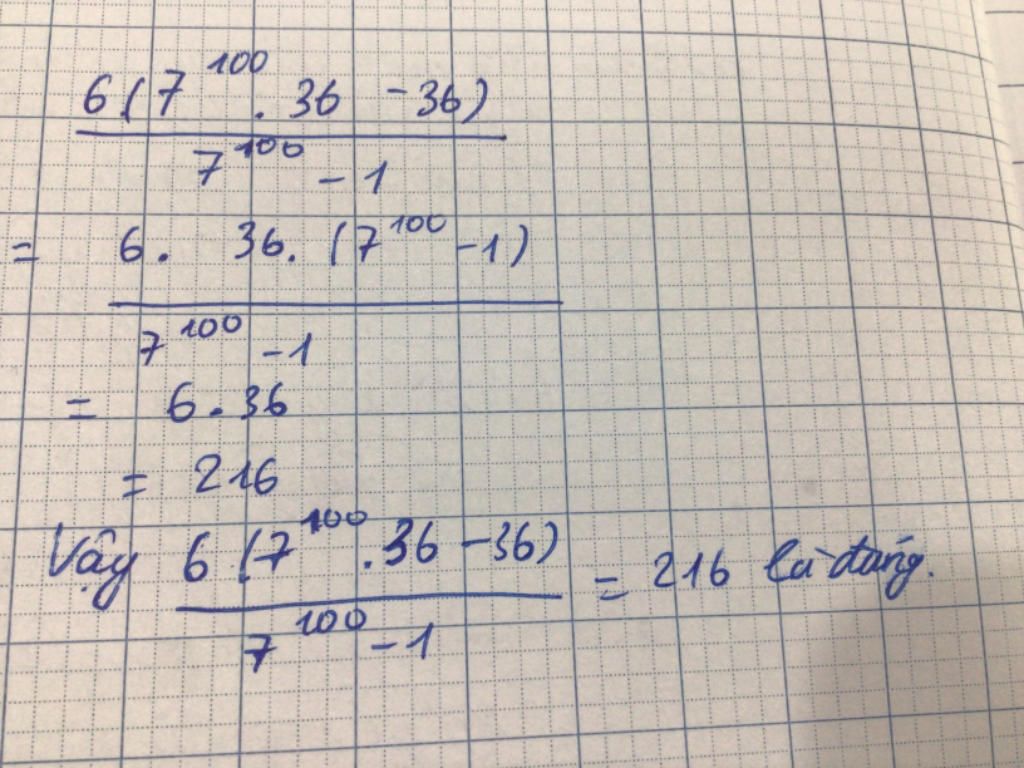 6(7^100 . 36 - 36)
7^100 - 1
= 6. 36. (7^100 - 1)
7^100 - 1
= 6.36
= 216
Vậy 6.(7^100 .36 - 36) = 216 là đúng.
7^100 - 1